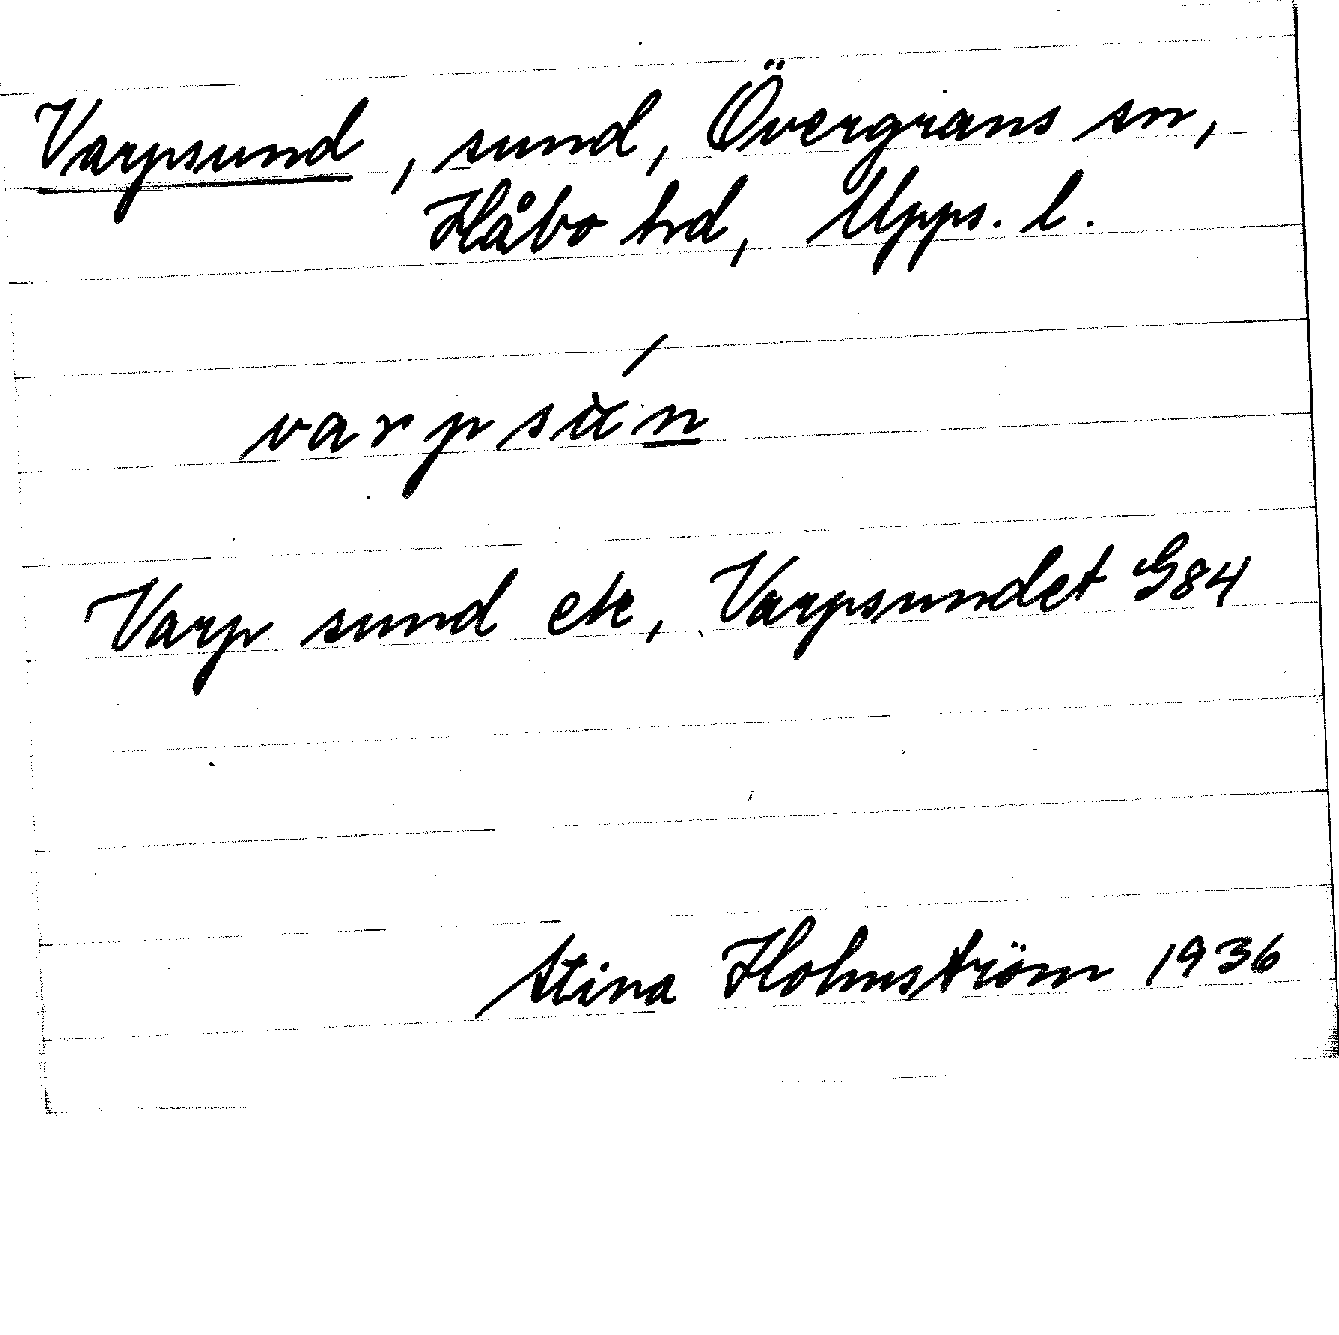 Varpsund, sund, Övergrans sn,
Håbo hd, Upps. l.
Varp sund ek, Varpsundet G84
Stina Holmström 1936